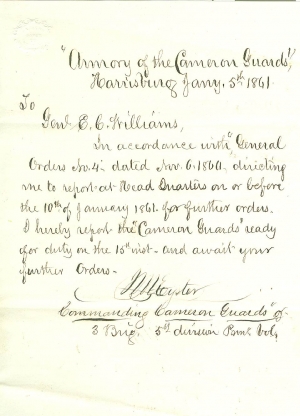 "Armory of the Cameron Guards"
Harrisburg Jany. 5th 1861.
To
Genl. E. C. Williams,
In accordance with "General
Orders No. 4." dated Nov. 6. 1860. directing
me to report at Head Quarters on or before
the 10th of January 1861. for further orders.
I hereby report the "Cameron Guards" ready
for duty on the 15th inst. and await your
further Orders.
Eyster
Commanding Cameron Guards" of
3 Brig. 5th division Penna Vol,